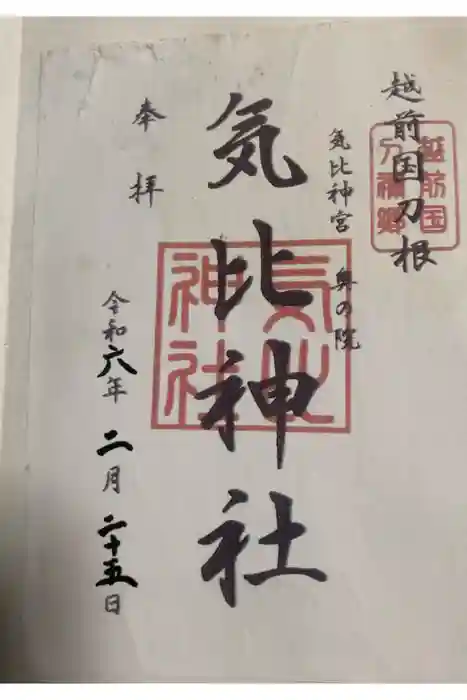 越前国刀根
気比神宮 奥の院
気比神社
奉拝
令和六年 二月 二十五日
越前国
刀根郷
気比
神社